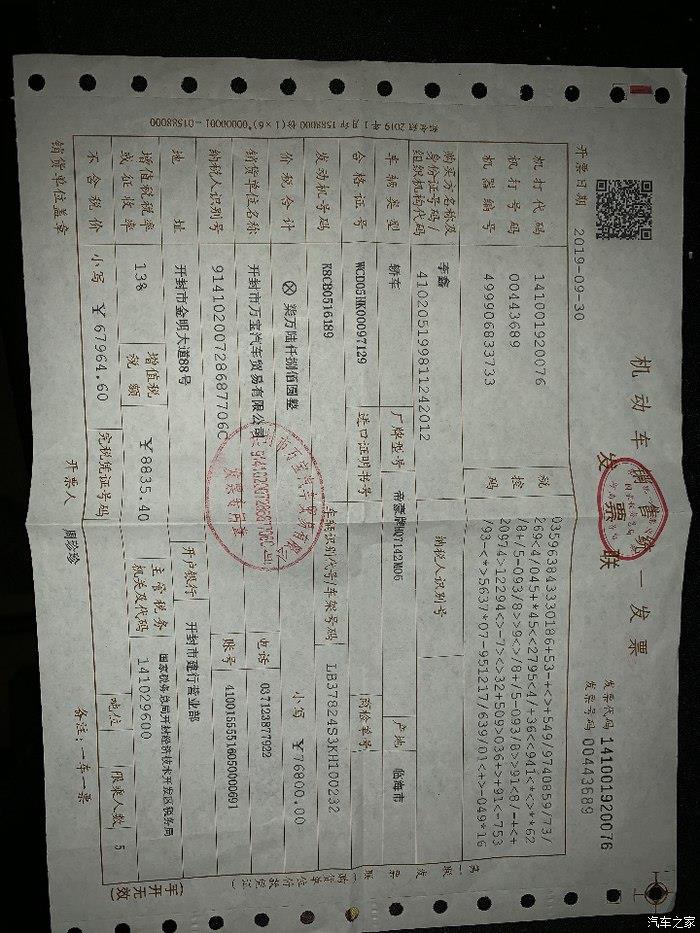 机动车销售统一发票
发票联
发票代码 141001920076
发票号码 00443689
开票日期 2019-09-30
机打代码 141001920076
机打号码 00443689
机器编号 499906833733
税控码
03596384333018 6+53-+<>+549/9740859/73/
269<4/045+*45<<2795<4/+36<<941<*<>**62
/8+/5-093/8>>9<>/8+/5-093/8>>91<8/-+<+
20974>12294<>-7><>32+509>036+>+91<-753
/93-<*>5637*07-951217/639/01<+>-049*16
购买方名称及身份证号码/组织机构代码
李鑫
410205199811242012
纳税人识别号
车辆类型 轿车
厂牌型号 帝豪牌HQ7142M05
产地 临海市
合格证号 WCD05HK00097129
进口证明书号
商检单号
发动机号码 K8CB0516189
车辆识别代号/车架号码 LB37824S3KH100232
价税合计 ⊗柒万陆仟捌佰圆整
小写 ￥76800.00
销货单位名称 开封市万宝汽车贸易有限公司
电话 037123877922
纳税人识别号 91410200728687706C
账号 41001555516050000691
地址 开封市金明大道88号
开户银行 开封市建行营业部
增值税税率或征收率 13%
增值税税额 ￥8835.40
主管税务机关及代码
国家税务总局开封经济技术开发区税务局
141029600
不含税价 小写 ￥67964.60
完税凭证号码
吨位
限乘人数 5
销货单位盖章
开票人 周珍珍
备注：一车一票
第一联 发票联
(手开无效)
发票专用章
汽车之家